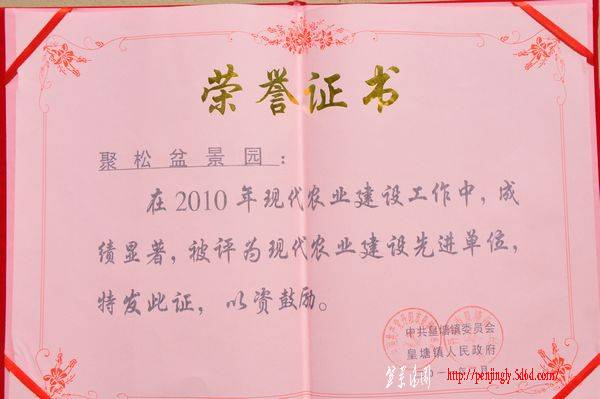 荣誉证书
聚松盆景园：
在2010年现代农业建设工作中，成
绩显著，被评为现代农业建设先进单位，
特发此证，以资鼓励。
中共皇塘镇委员会
皇塘镇人民政府
http://penjingly.5d6d.com/